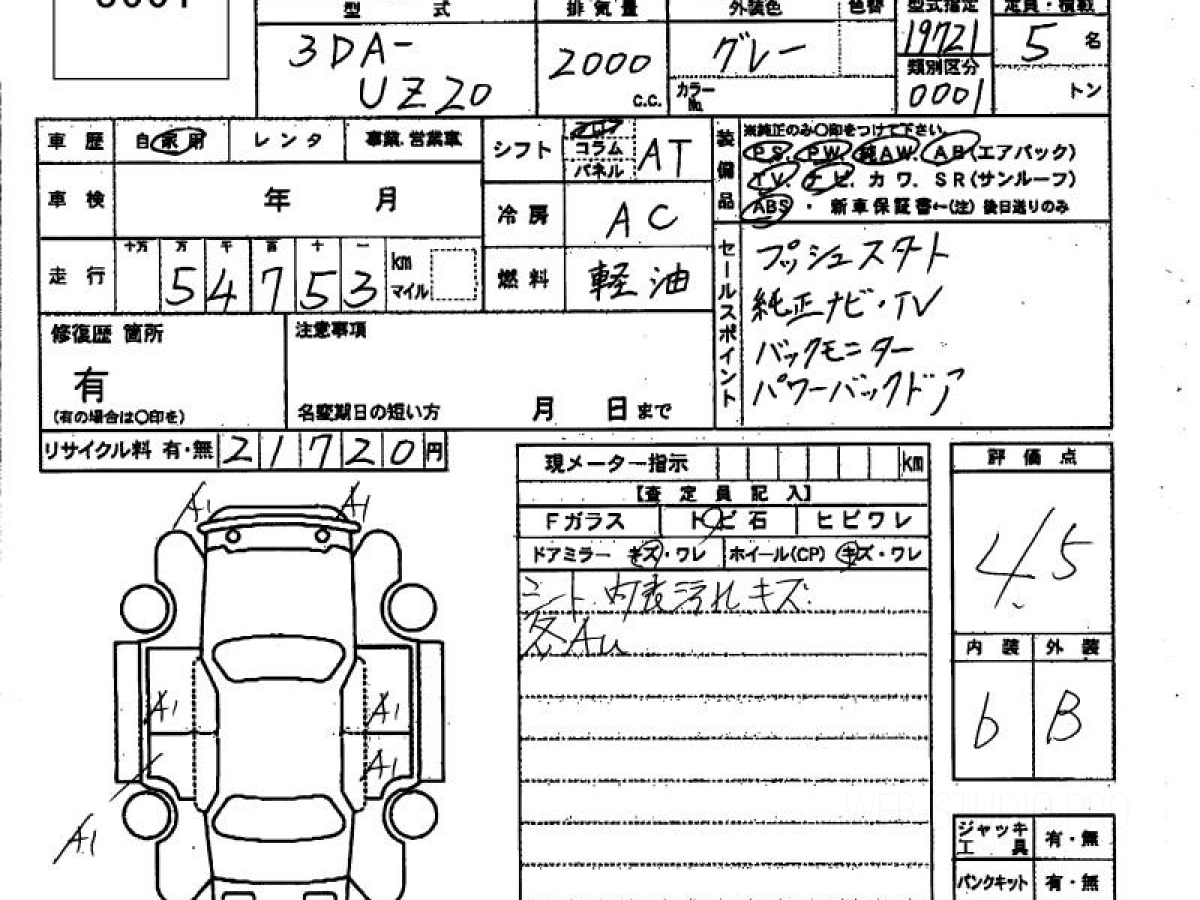 型 式 排気量 外装色 色替 型式指定 定員・積載
3DA-
UZ20
2000
C.C.
グレー
カラーNo.
19721
類別区分
0001
5 名
トン
車歴 自家用 レンタ 事業.営業車
車検 年 月
走行 十万 万 千 百 十 一
54753 km マイル
シフト フロア コラム パネル AT
冷房 AC
燃料 軽油
装備品
※純正のみ○印をつけて下さい。
PS. PW. 純AW. AB(エアバック)
TV. ナビ. カワ. SR(サンルーフ)
ABS ・ 新車保証書←(注) 後日送りのみ
セールスポイント
プッシュスタート
純正ナビ・TV
バックモニター
パワーバックドア
修復歴 箇所
有
(有の場合は○印を)
注意事項
名変期日の短い方 月 日 まで
リサイクル料 有・無 21720 円
現メーター指示 KM
【査定員記入】
Fガラス トビ石 ヒビワレ
ドアミラー キズ・ワレ ホイール(CP) キズ・ワレ
シート 内表汚れキズ.
各Au
評価点
4.5
内装 外装
b B
A1 A1
A1 A1
A1
A1
ジャッキ工具 有・無
パンクキット 有・無
WEB STUDIO PRO